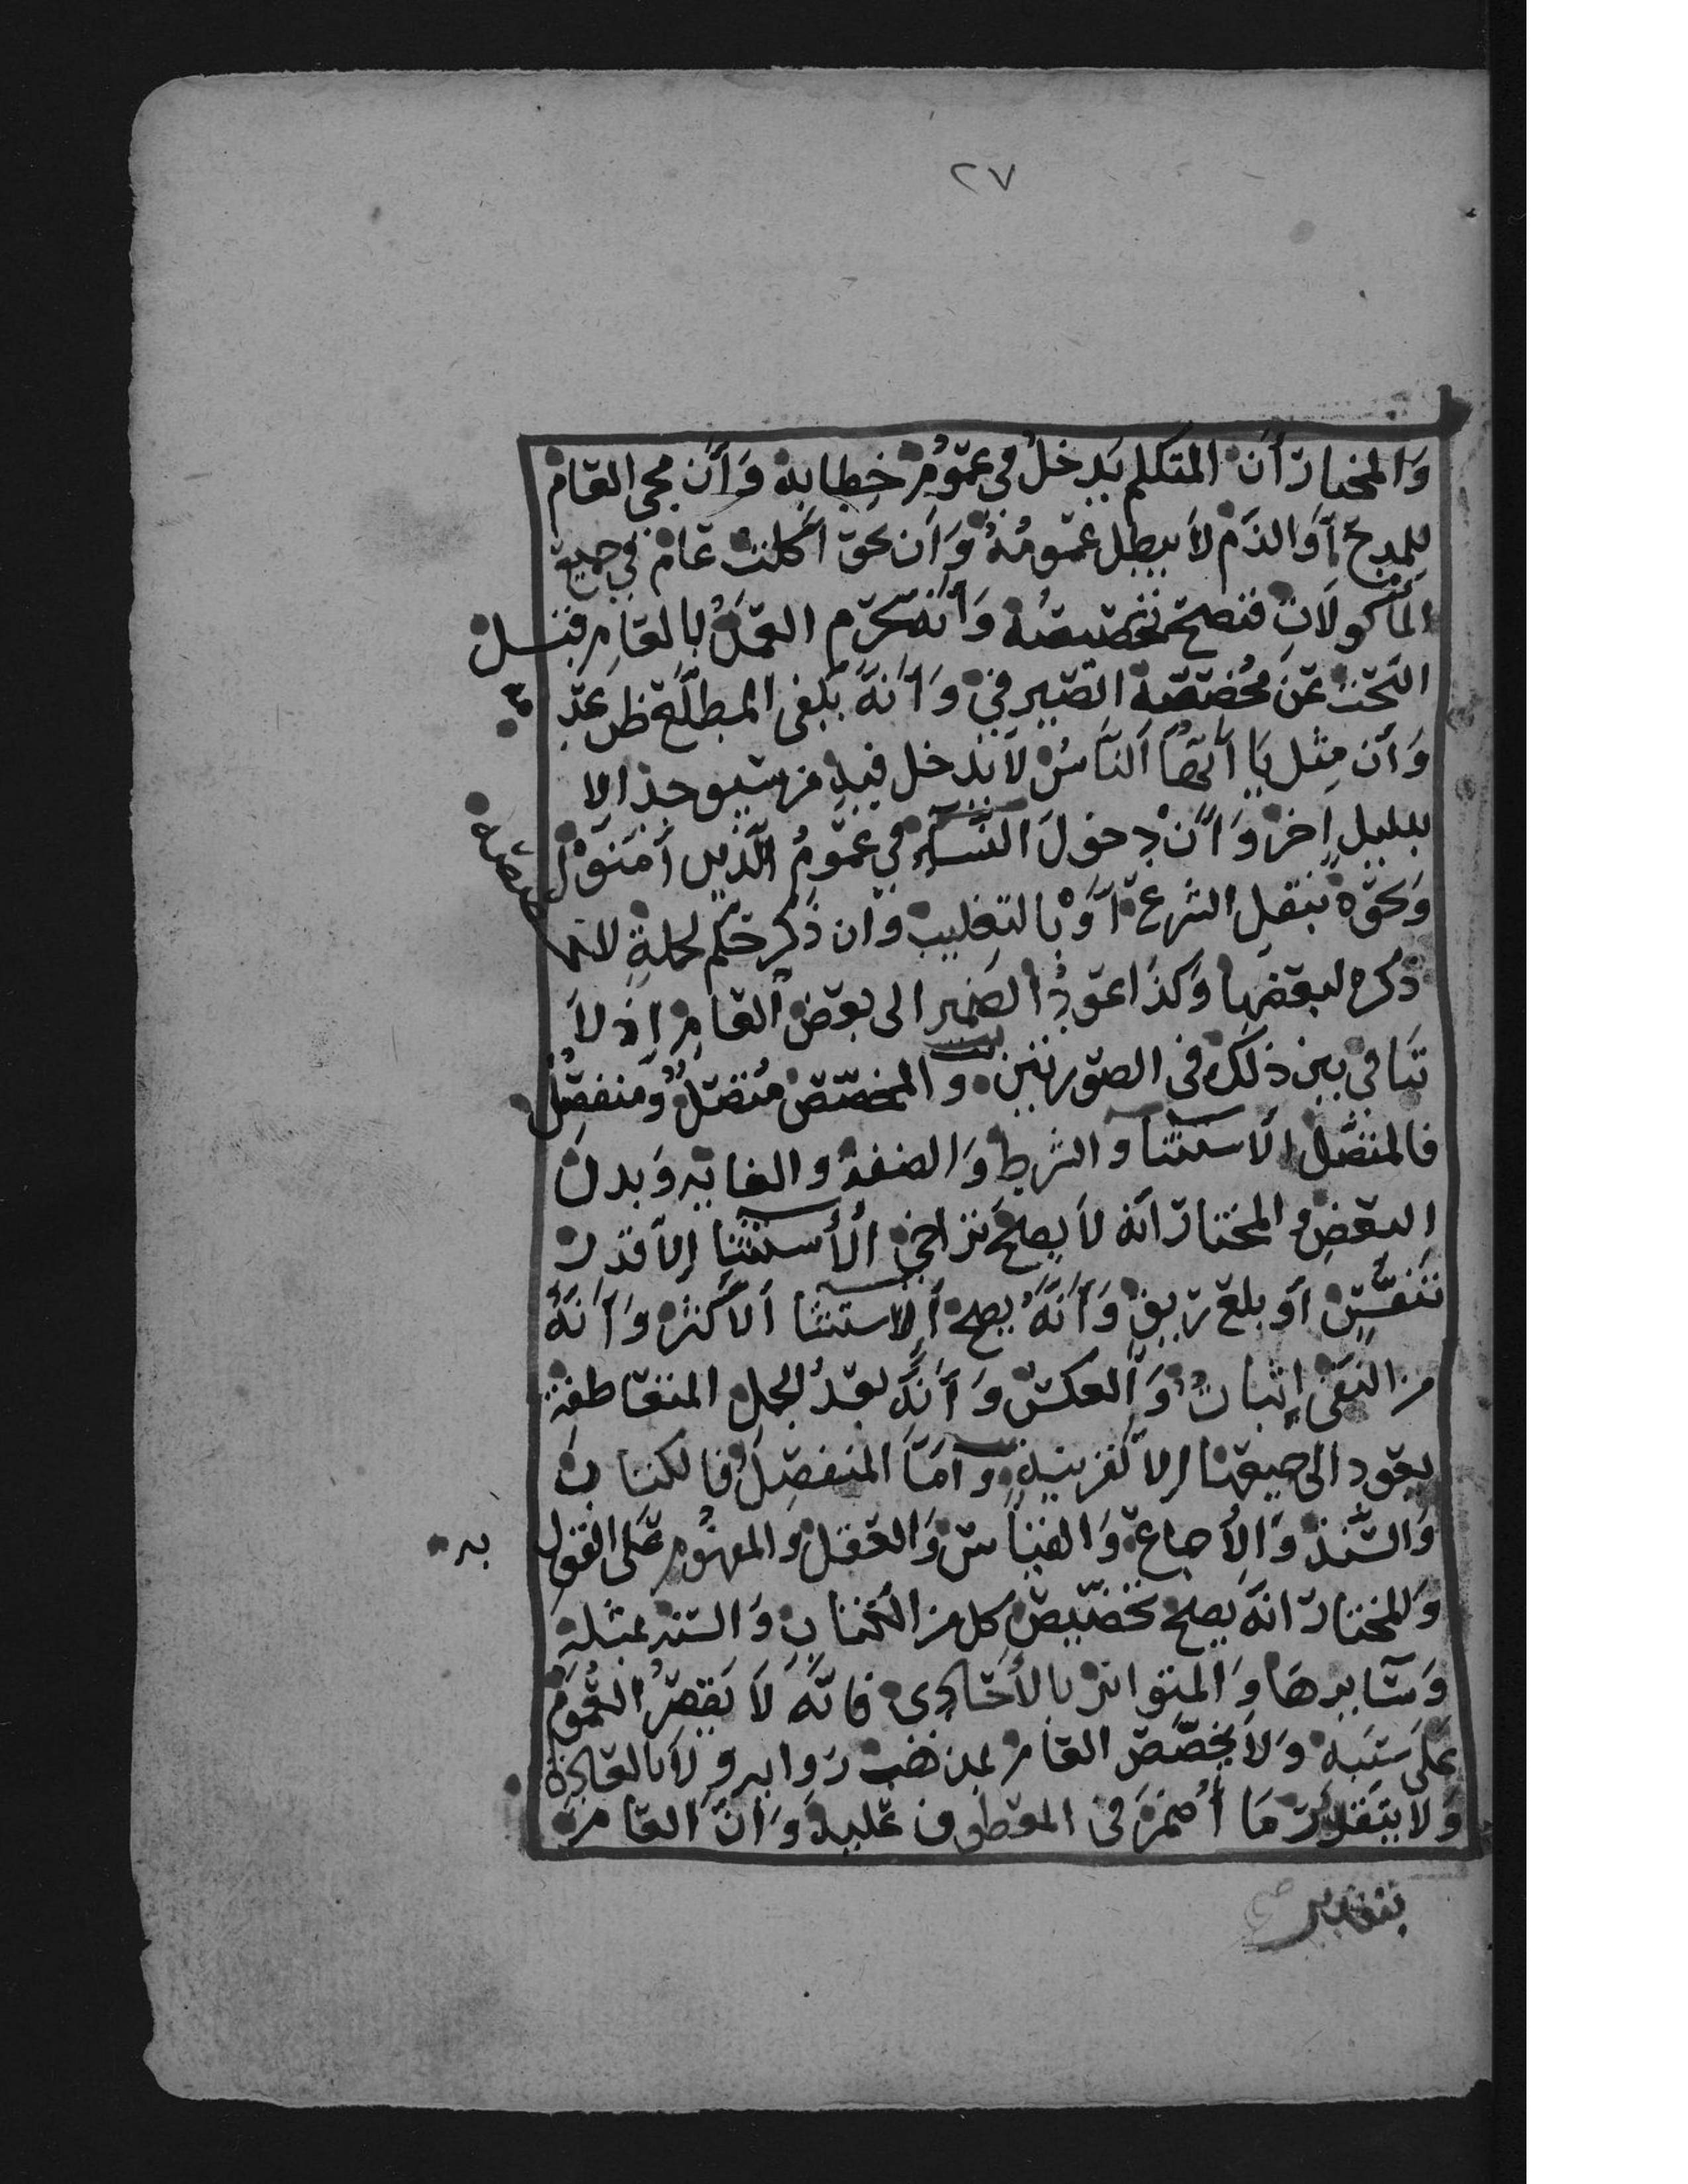 ٢٧
وَالمختار أنَ المتكلم يَدخلُ في عمُومِ خِطابِه وَأَن مجي العَام
للمدحِ أوَ الذَم لاَ يبطل عمُومُهُ وَأن نحو أكلتُ عَامٌ في جميع
المأكولاَتِ فتصح تخصيصُه وَأنه يحرم العَملُ بالعَامِ قبل
البَحث عَن مُخصّصِه الصّيرفي وَأنهُ يكفى المطلَّع ظن عدمِ
وَأن مِثل يَا أَيّهَا اَلناسُ لاَ يَدخل فيهِ من سَيوجد إلا
بدليل اخر وَأنْ دخولَ النّسَاءِ في عمُومُ اَلّذين آمَنوْا
وَنحوْه بنقل الشرعِ أوْ بالتغليبِ وان ذكر حكم لجملةٍ لا يخصصه
ذكره لبعضِها وَكذا عَودُ الضمير الى بعض العَامِ إذ لاَ
تنَافي بين ذلك في الصورتين و المخصّصُ مُتصلٌ وَمنفصِلٌ
فالمتصل الاستثنا و الشرط وَالصفة و الغايه وَبدل
البعضِ وَالمختار أنه لا يصحُ تراخي الاستثنا إلا قدر
تنفسٍ أو بلع ريقٍ وَأنَّهُ يصح اَلاستثنا اَلاكثر وَأنهُ
من النَفى إثباتٌ وَالعكسُ وَأَنهُ بعدَ الجمل المتعَاطفة
يعود الى جميعهَا إلا لقرينة وَأمَّا المنفصِلُ فالكتاب
وَالسُّنة وَالإجماع وَالقياس وَالعقل و المفهُوم عَلى القول به
وَالمختار انهُ يصح تخصيص كل من الكتاب وَالسنه بمثله
وَسَايرهَا وَالمتواتر بِالأُحَادي فانَّه لاَ يقصرُ العُمومُ
عَلى سَببه وَلاَ يخصّصَ العَام بمذهب رَوايه وِ لاَ بالعَادة
وَلاَ يتقدَر مَا أُضمرَ في المعطوف عَليه وَأنَّ العَام
بتقدير